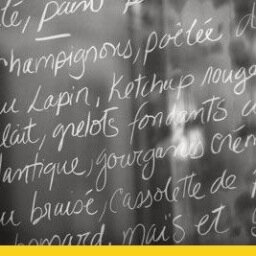 té, pain
champignons, poêlée d
au Lapin, Ketchup rouge
lait, grelots fondants
lantique, gourganes crém
u braisé, Cassolette de
homard, maïs et